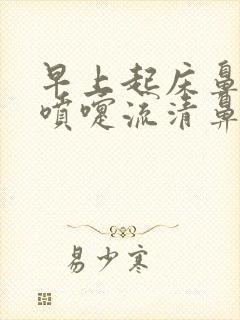 早上起床鼻
喷嚏流清鼻
易少寒